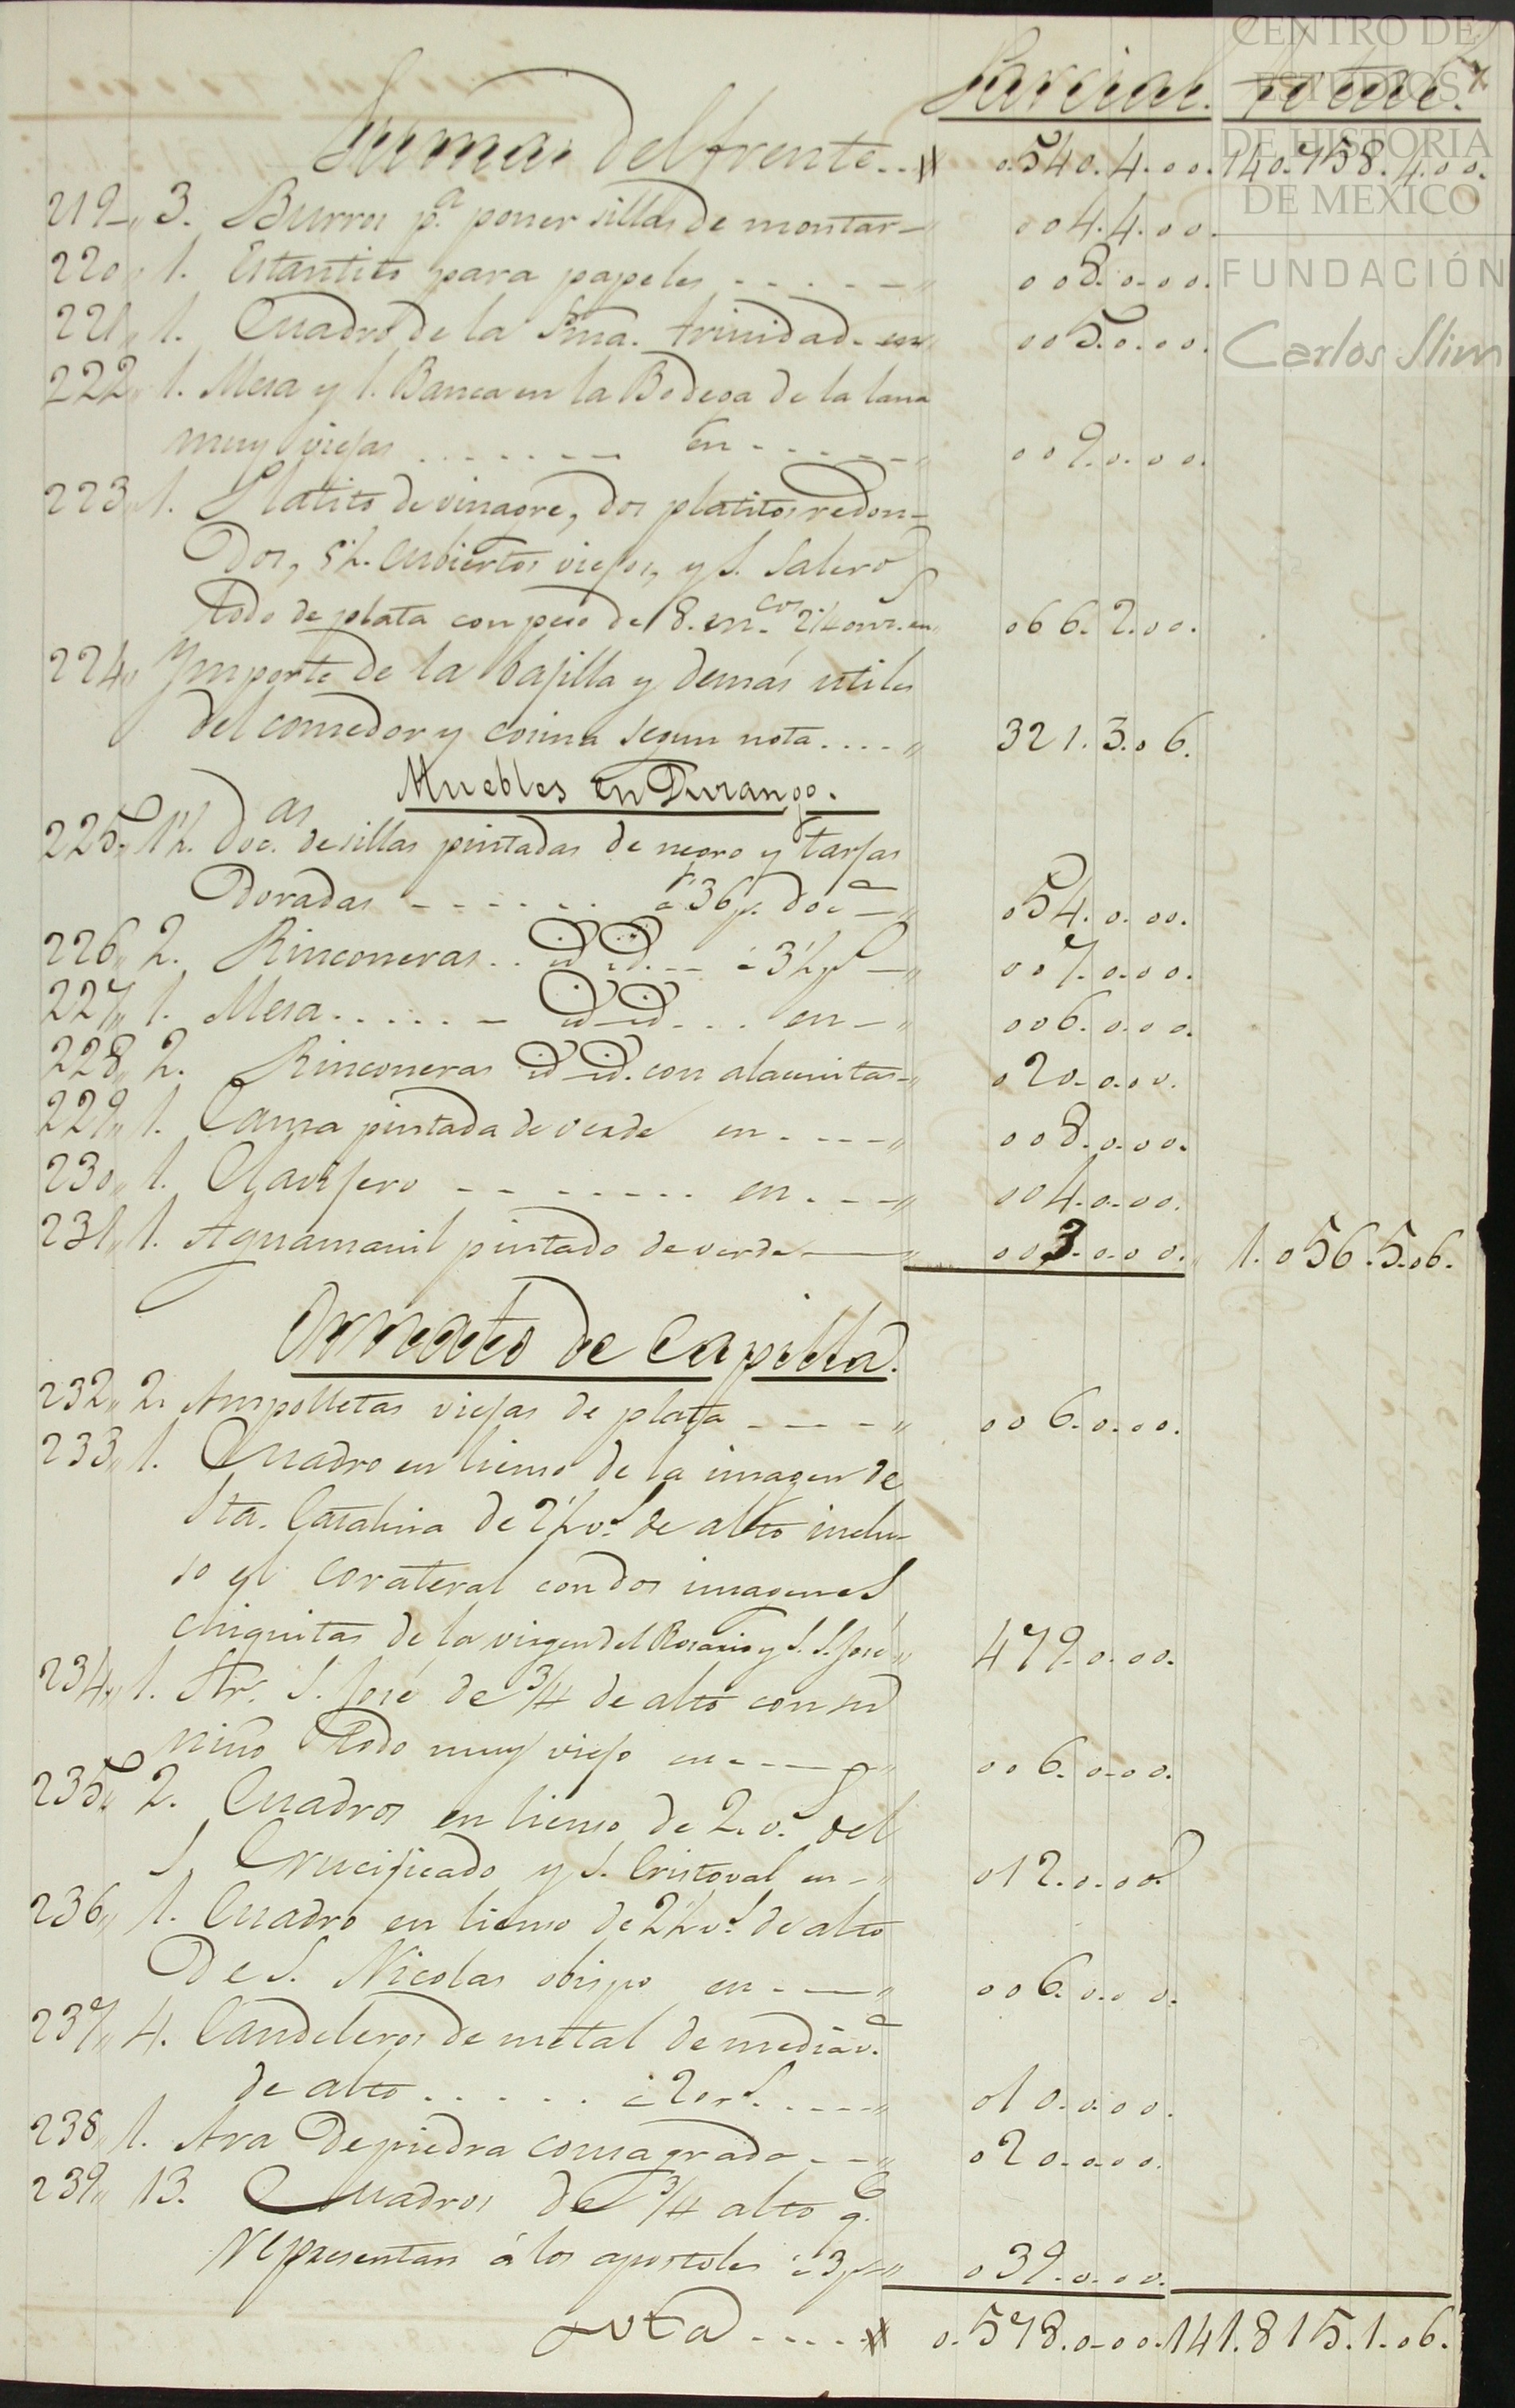 Parcial. Total.
Sumas del frente.. 0.540.4.00. 140.758.4.00.
219 3. Burros p.a poner sillas de montar 004.4.00.
220 1. Estantito para papeles 008.0.00.
221 1. Cuadro de la Sma. trinidad en 005.0.00.
222 1. Mesa y 1. Banca en la Bodega de la lana
muy viejas en 009.0.00.
223 1. Platito de vinagre, dos platitos redon-
dos, 5½. cubiertos viejos, y 1. Salero
todo de plata con peso de 8. m.cos 2½ onz. en 066.2.00.
224 Ymporte de la bajilla y demás utiles
del comedor y cosina segun nota.... 321.3.06.
Muebles en Durango.
225 1½. Doc.as de sillas pintadas de negro y tarjas
Doradas á 36 p. doc.a 054.0.00.
226 2. Rinconeras.. id id. á 3½ p.s 007.0.00.
227 1. Mesa..... id id... en 006.0.00.
228 2. Rinconeras id id. con alacenitas 020.0.00.
229 1. Cama pintada de verde en 008.0.00.
230 1. Clavijero en 004.0.00.
231 1. Aguamanil pintado de verde 003.0.00. 1.056.5.06.
Ornatos de Capilla.
232 2. Ampolletas viejas de plata 006.0.00.
233 1. Cuadro en lienso de la imagen de
Sta. Catalina de 2½ v.s de alto inclu-
so el corateral con dos imagenes
chiquitas de la virgen del Rosario y S. S. José 479.0.00.
234 1. Sr. S. José de ¾ de alto con su
niño todo muy viejo en 006.0.00.
235 2. Cuadros en lienso de 2. v.s del
S. Crucificado y S. Cristoval en 012.0.00.
236 1. Cuadro en lienso de 2½ v.s de alto
De S. Nicolas obispo en 006.0.00.
237 4. Candeleros de metal de media v.a
de alto..... á 20 r.s 010.0.00.
238 1. Ara De piedra consagrada 020.0.00.
239 13. Cuadros de ¾ alto q.e
representan á los apostoles á 3 p.s 039.0.00.
Vta 0.578.0.00. 141.815.1.06.
CENTRO DE
ESTUDIOS
DE HISTORIA
DE MEXICO
FUNDACIÓN
Carlos Slim